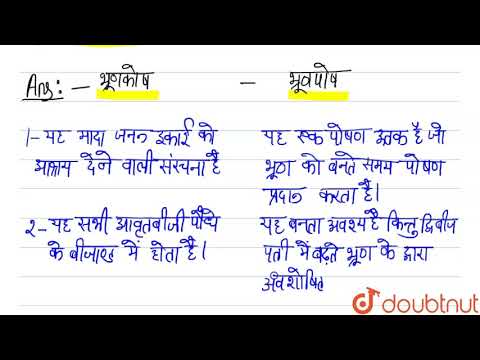 Ans:- भ्रूणकोष - भ्रूणपोष
1- यह मादा जनन इकाई को यह एक पोषण ऊतक है जो
आश्रय देने वाली संरचना है भ्रूण को बनते समय पोषण
प्रदान करता है।
२- यह सभी आवृतबीजी पौधों यह बनता अवश्य है किन्तु द्विबीज
के बीजाण्ड में होता है। पत्री में बढ़ते भ्रूण के द्वारा
अवशोषित
doubtnut